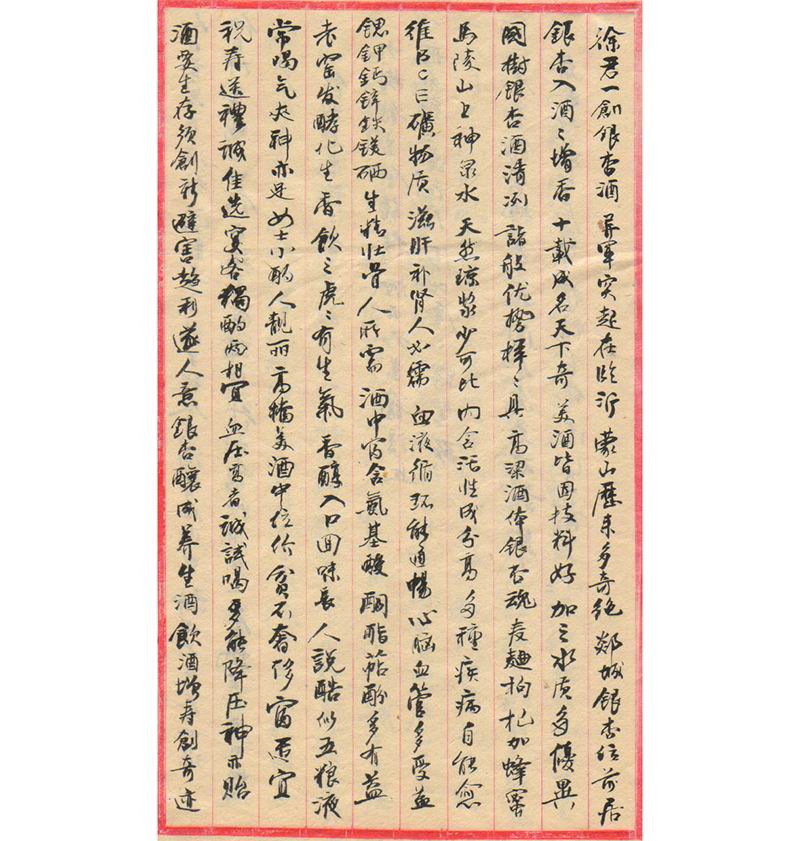 徐君一創銀杏酒 异軍突起在臨沂 蒙山歷來多奇绝 郯城銀杏位前居
銀杏入酒〻增香 十載成名天下奇 美酒皆因技料好 加之水质多優異
國樹銀杏酒清冽 諸般优势樣〻具 高梁酒体銀杏魂 麦麯枸杞加蜂蜜
馬陵山上神泉水 天然琼浆少可比 内含活性成分高 多種疾病自能愈
維BCE礦物质 滋肝补肾人必需 血液循环能通暢 心脑血管多受益
锶钾鈣鋅鉄鎂硒 生精壮骨人所需 酒中富含氨基酸 酮酯萜酚多有益
老窖发酵化生香 飲之虎〻有生氣 香醇入口回味长 人説酷似五粮液
常喝气爽神亦足 女士小酌人靚丽 高檔美酒中位价 贫不奢侈富适宜
祝寿送禮诚佳选 宴客獨酌两相宜 血压高者诚試喝 多能降压神亦贻
酒要生存须創新 避害趋利遂人意 銀杏釀成养生酒 飲酒增寿創奇迹